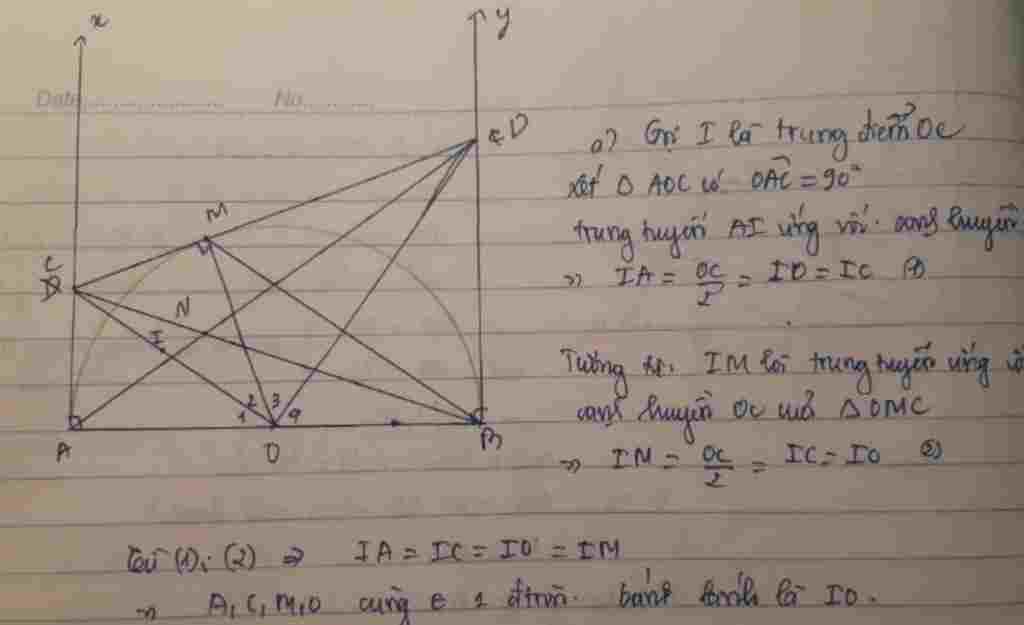 x
y
Date
No
D
M
C
N
I
2 3
1 4
A
O
B
a) Gọi I là trung điểm OC
xét Δ AOC có OAC = 90°
trung tuyến AI ứng với cạnh huyền
=> IA = OC/2 = IO = IC (1)
Tương tự. IM là trung tuyến ứng
cạnh huyền OC của Δ OMC
=> IM = OC/2 = IC = IO (2)
Từ (1); (2) => IA = IC = IO = IM
=> A, C, M, O cùng e 1 đtròn. bán kính là IO.